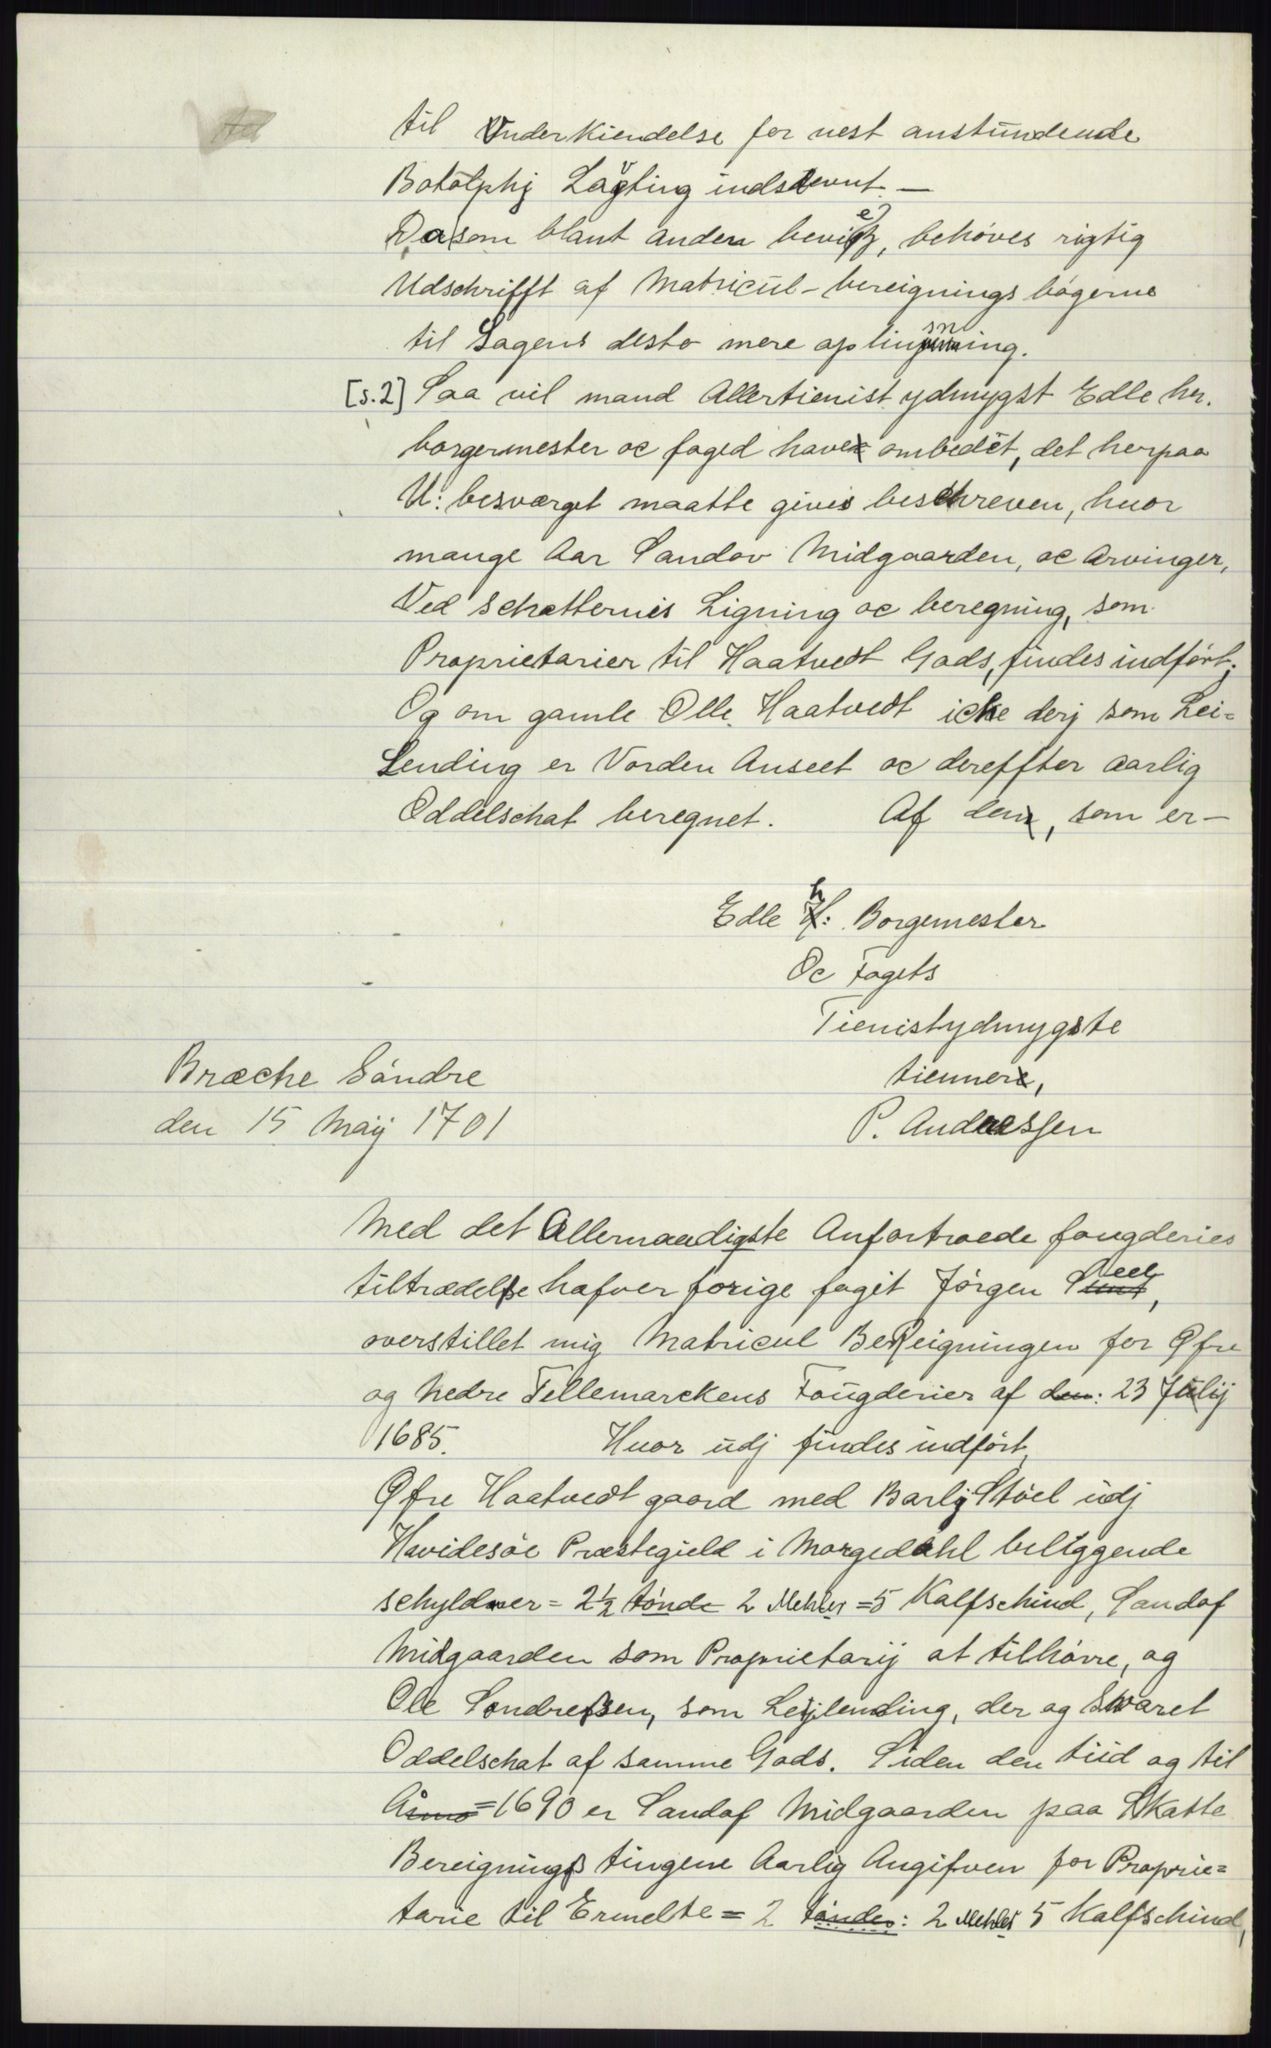 til Underkiendelse for nest anstundende
Botolphj Lavgting indstevnt. —
Da som blant anden beviß, behöves rigtig
Udschrifft af Matricul-bereignings bögerne
til Sagens desto mere oplinsning.
[s.2] Saa vil mand Allertienist ydmygst Edle hr.
borgermester oc foged have ombedet, det herpaa
U: besværget maatte givis beschreven, huor
mange Aar Sandov Midgaarden, oc Arvinger,
Ved schatternis Ligning oc beregning, som
Proprietarier til Haatvedt Gods, findes indfört;
Og om gamle Olle Haatvedt icke derj som Lei=
Lending er Vorden Anseet oc dereffter aarlig
Oddelschat beregnet. Af den, som er —
Edle h: Borgemester
Oc Fogets
Tienistydmygste
tienner,
Bræche Söndre
den 15 Maij 1701
P. Andressen
Med det Allernaadigste Anfortroede fougderies
tiltrædelse hafver forige foget Jörgen
overstillet mig Matricul BeReigningen for Øfre
og Nedre Tellemarckens Fougderier af den: 23 Julij
1685. Huor udj findes indfört,
Øfre Haatvedt gaard med Barlj Stöel udj
Havidesöe Præstegield i Morgedahl beliggende
schylder = 2½ tönde 2 Mehler = 5 Kalfschind, Sandof
Midgaarden som Proprietarij at tilhörre, og
Ole Sondreßen, som Leijlending, der og Swaret
Oddelschat af samme Gods. Siden den tiid og til
Åsmo = 1690 er Sandof Midgaarden paa SKatte
Bereignings tingene Aarlig Angifven for Proprie=
tarie til Ermelte = 2 tönder: 2 Mehler 5 Kalfschind,